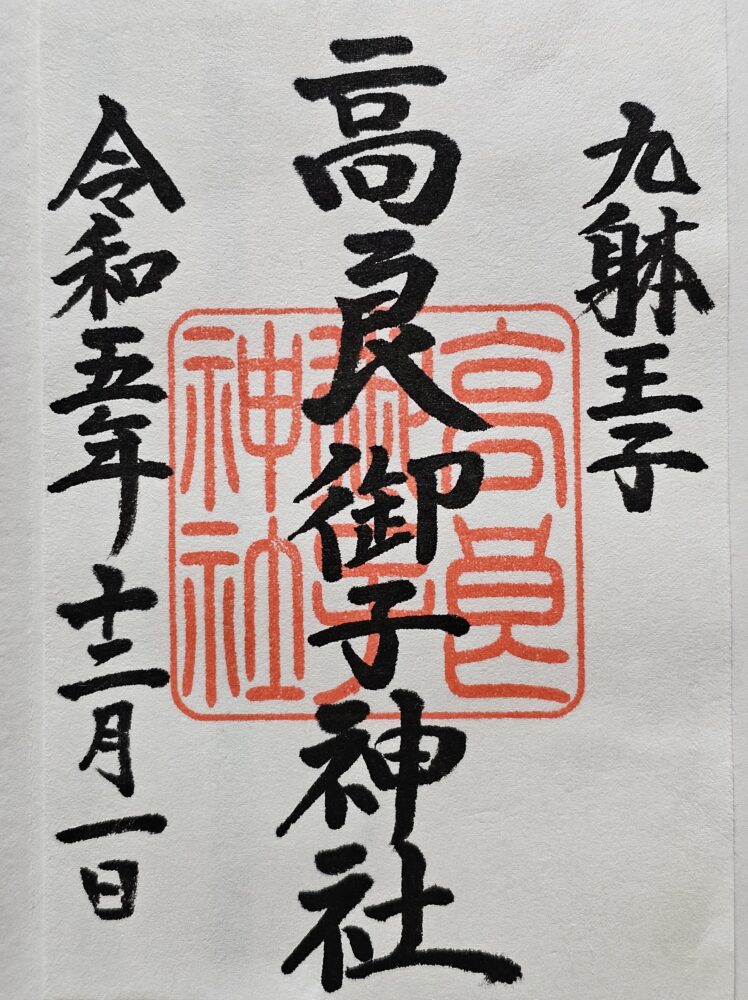 九躰王子
高良御子神社
令和五年十二月一日
高良
御子
神社